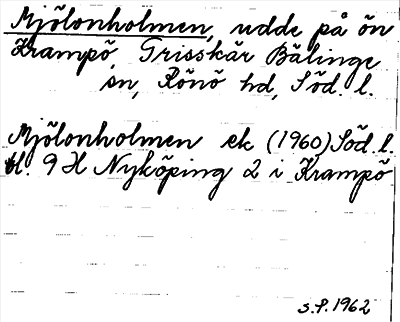 Mjölonholmen, udde på ön
Krampö, Grisskär Bälinge
sn, Rönö hd, Söd. l.
Mjölonholmen ek (1960) Söd. l.
bl. 9 H Nyköping 2 i Krampö
s.f. 1962